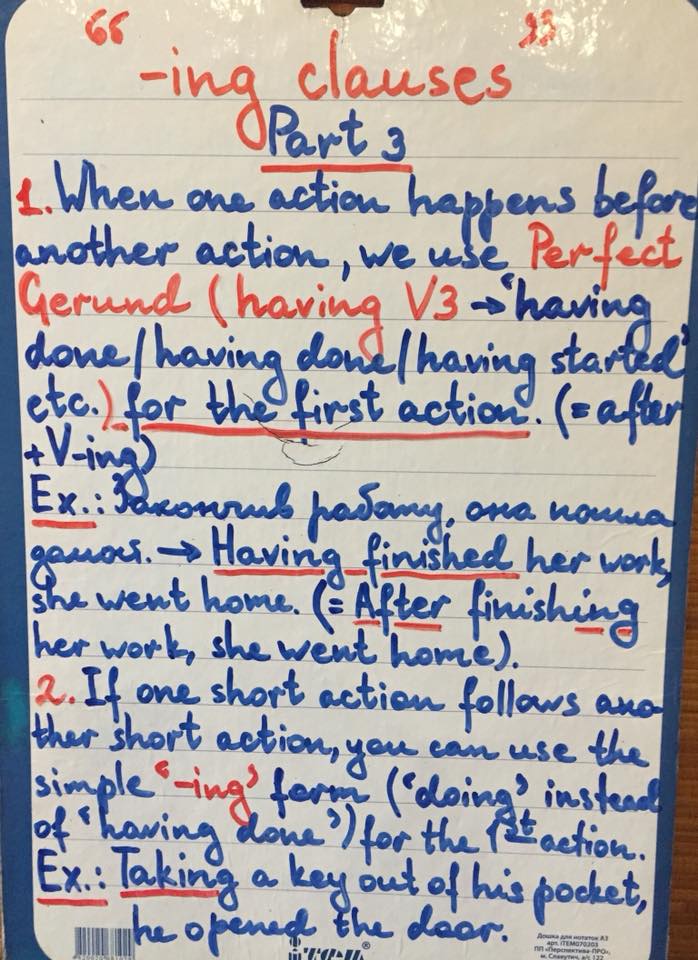 “ -ing clauses ”
Part 3
1. When one action happens before
another action, we use Perfect
Gerund (having V3 → ‘having
done/having done/having started’
etc.) for the first action. (= after
+V-ing)
Ex.: Закончив работу, она пошла
домой. → Having finished her work,
she went home. (= After finishing
her work, she went home).
2. If one short action follows ano
ther short action, you can use the
simple ‘-ing’ form (‘doing’ instead
of ‘having done’) for the 1st action.
Ex.: Taking a key out of his pocket,
he opened the door.
Дошка для нотаток А3
арт. ITEM070203
ПП «Перспектива-ПРО»,
м. Славутич, а/с 122